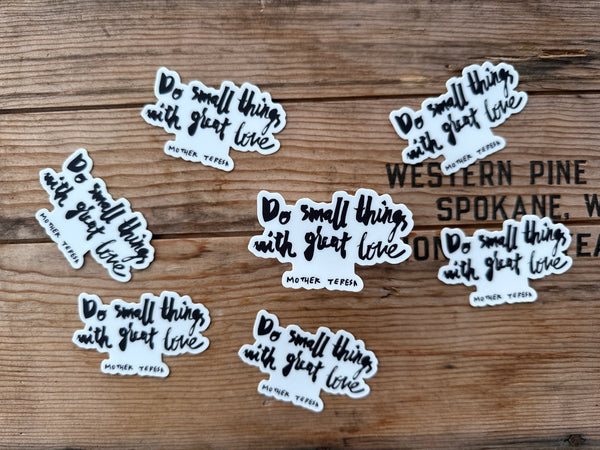 Do small things
with great love
MOTHER TERESA
Do small things
with great love
MOTHER TERESA
WESTERN PINE
SPOKANE, W
Do small things
with great love
MOTHER TERESA
Do small things
with great love
MOTHER TERESA
Do small things
with great love
MOTHER TERESA
Do small things
with great love
MOTHER TERESA
Do small things
with great love
MOTHER TERESA